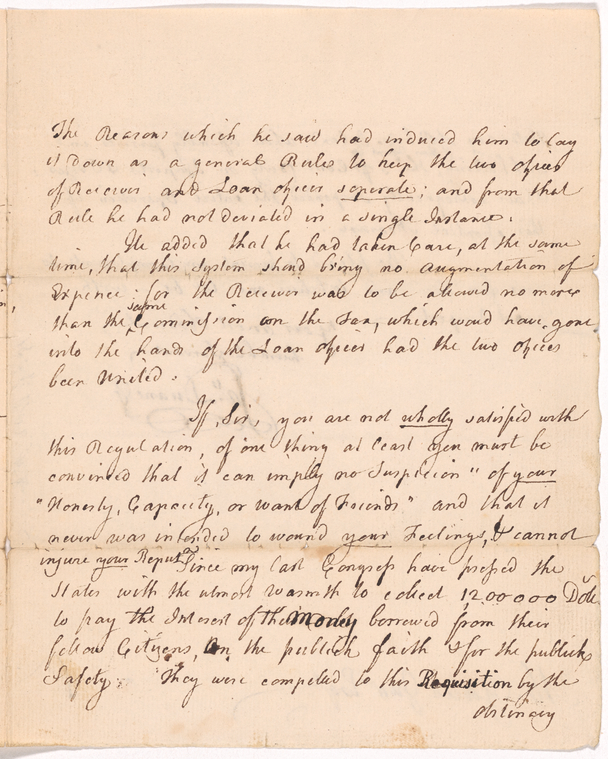 The Reasons which he said had induced him to lay
it down as a general Rule to keep the two offices
of Receiver and Loan officer seperate; and from that
Rule he had not deviated in a single Instance.
He added that he had taken Care, at the same
time, that this System shoud bring no augmentation of
Expence; for the Receiver was to be allowed no more
than the same Commission on the Tax, which woud have gone
into the hands of the Loan officer had the two offices
been United.
If, Sir, you are not wholly satisfied with
this Regulation, of one thing at least you must be
convinced that it can imply no Suspicion "of your
"Honesty, Capacity, or want of Friends" and that it
never was intended to wound your Feelings, & cannot
injure your Reputn.
Since my last Congress have pressed the
States with the utmost warmth to collect 1200000 Dolls
to pay the Interest of the Money borrowed from their
fellow Citizens, on the publick faith & for the publick
Safety. They were compelled to this Requisition by the
obstinacy